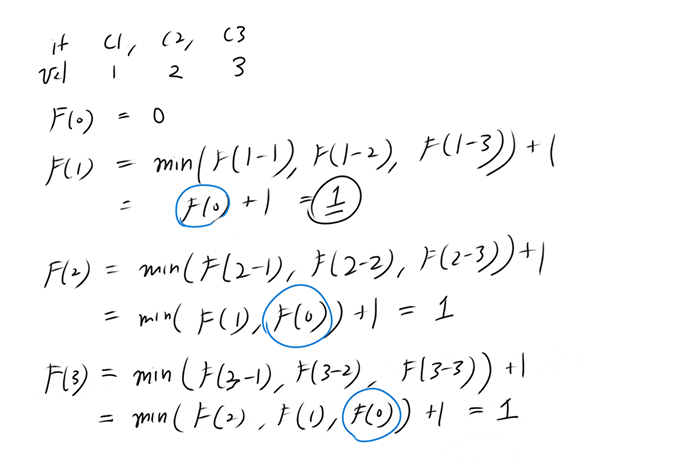 it C1, C2, C3
val 1 2 3
F(0) = 0
F(1) = min(F(1-1), F(1-2), F(1-3))+1
= F(0) +1 = 1
F(2) = min(F(2-1), F(2-2), F(2-3))+1
= min( F(1), F(0)) +1 = 1
F(3) = min(F(3-1), F(3-2), F(3-3)) +1
= min(F(2), F(1), F(0)) +1 = 1